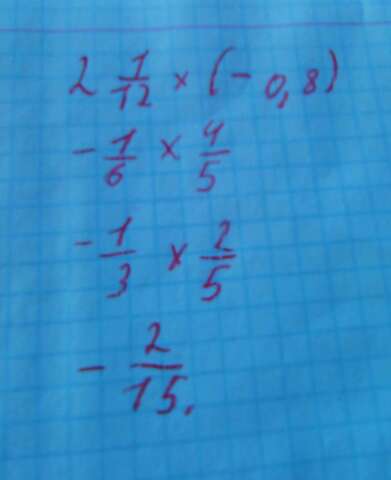 2 1/12 × (- 0,8)
- 1/6 × 4/5
- 1/3 × 2/5
- 2/15.